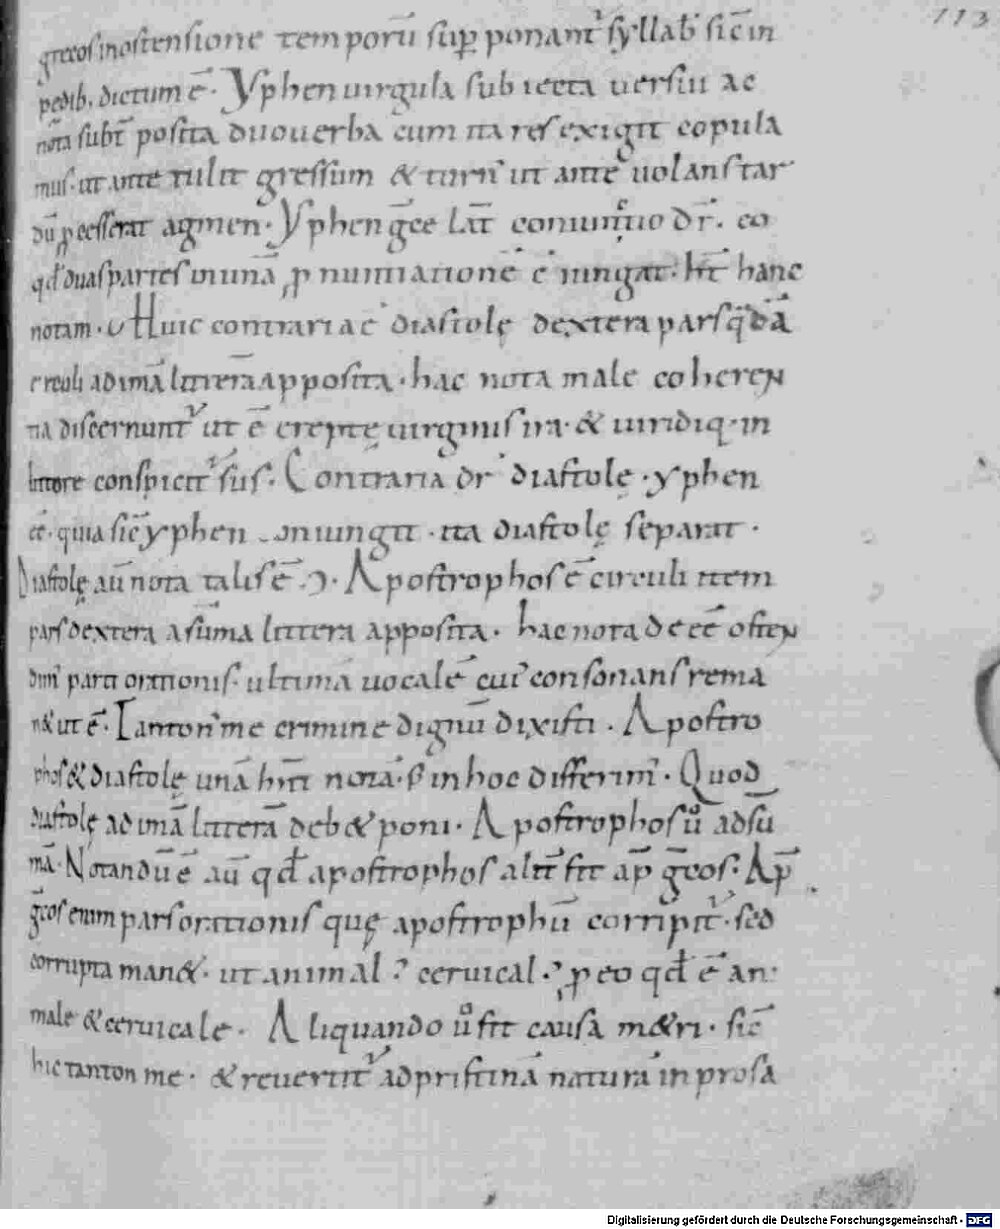 113
grecos in ostensione temporū sup̄ ponant᷒ syllab̄ sic̄ in
pedib. dictum ē. Yphen uirgula subiecta uersui ac
nota subt̄ posita duo uerba cum ita res exigit copula
mus. ut ante tulit gressum & turn᷒ ut ante uolans tar
dū p̱cesserat agmen. Yphen ḡce lat̄ coniunctio dr̄. eo
qđ duas partes in unā p̱nuntiatione c̄iungat. hēt hanc
notam. ‿ Huic contraria ē diastolę dextera pars q̄dā
circuli ad imā litterā apposita. hac nota male coheren
tia discernunt᷒ ut ē ereptę uirginis ira. & uiridiq. in
littore conspicit᷒ sus. Contraria dr̄ diastolę. yphen
eē. quia sic̄ yphen coniungit. ita diastolę separat.
Diastolę aū nota talis ē. ɔ. Apostrophos ē circuli item
pars dextera a sūma littera apposita. hac nota deeē osten
dim᷒ parti orationis. ultimā uocalē cui᷒ consonans rema
n& ut ē. Tanton᷒ me crimine dignū dixisti. Apostro
phos & diastolę unā hn̄t notā. s̄ in hoc differunt᷒. Quod
diastolę ad imā litterā deb& poni. Apostrophos ū̊ ad sū
mā. Notandū ē aū qđ apostrophos alit̄ fit ap̄ ḡcos. Ap̄
ḡcos enim pars orationis quę apostrophū corripit᷒. sed
corrupta man&. ut animal ᷒ ceruical. ᷒ p̱ eo qđ ē ani
male & ceruicale. Aliquando ū̊ fit causa m&ri. sic̄
hic tanton me. & reuertit᷒ ad pristinā naturā in prosa
Digitalisierung gefördert durch die Deutsche Forschungsgemeinschaft - DFG